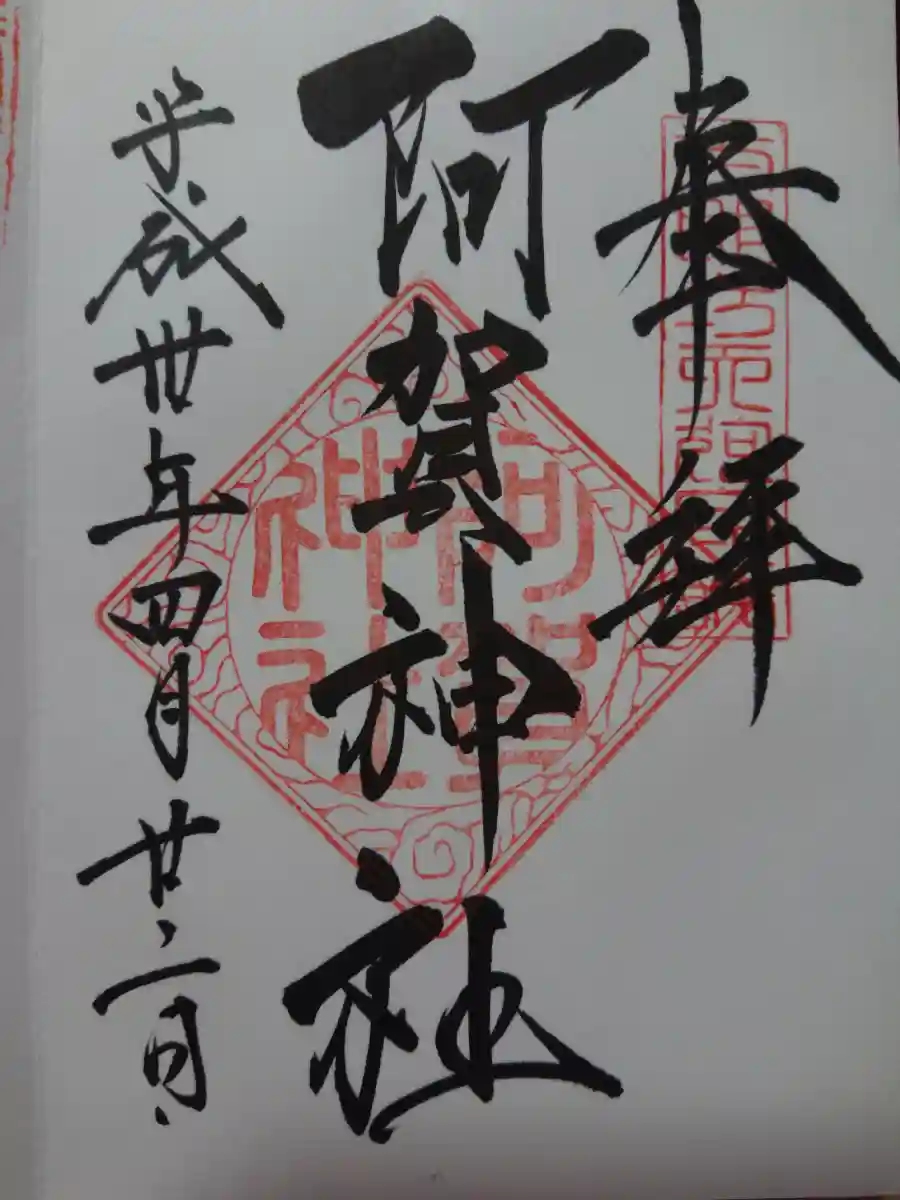 奉拝
阿賀神社
平成丗年四月廿二日
阿賀神社